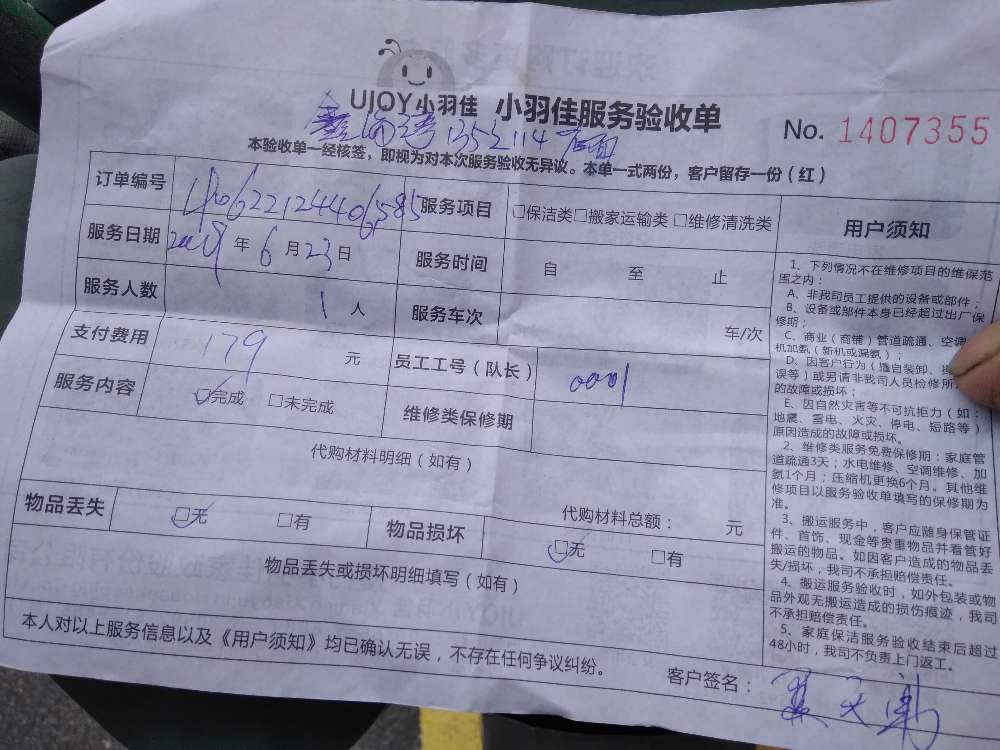 UJOY小羽佳 小羽佳服务验收单
No. 1407355
本验收单一经核签，即视为对本次服务验收无异议。本单一式两份，客户留存一份（红）
订单编号
服务项目 □保洁类□搬家运输类 □维修清洗类
服务日期 2019年6月23日
服务时间 自 至 止
服务人数 1人
服务车次 车/次
支付费用 179 元
员工工号（队长） 0001
服务内容 □完成 □未完成
维修类保修期
代购材料明细（如有）
代购材料总额： 元
物品丢失 □无 □有
物品损坏 □无 □有
物品丢失或损坏明细填写（如有）
本人对以上服务信息以及《用户须知》均已确认无误，不存在任何争议纠纷。
客户签名：
用户须知
1、下列情况不在维修项目的维保范
围之内：
A、非我司员工提供的设备或部件；
B、设备或部件本身已经超过出厂保
修期；
C、商业（商铺）管道疏通、空调
机加氨（新机或漏氨）；
D、因客户行为（擅自装卸、
误等）或另请非我司人员检修所
的故障或损坏；
E、因自然灾害等不可抗拒力（如：
地震、雷电、火灾、停电、短路等）
原因造成的故障或损坏。
2、维修类服务免费保修期：家庭管
道疏通3天；水电维修、空调维修、加
氨1个月；压缩机更换6个月。其他维
修项目以服务验收单填写的保修期为
准。
3、搬运服务中，客户应随身保管证
件、首饰、现金等贵重物品并看管好
搬运的物品。如因客户造成的物品丢
失/损坏，我司不承担赔偿责任。
4、搬运服务验收时，如外包装或物
品外观无搬运造成的损伤痕迹，我司
不承担赔偿责任。
5、家庭保洁服务验收结束后超过
48小时，我司不负责上门返工。